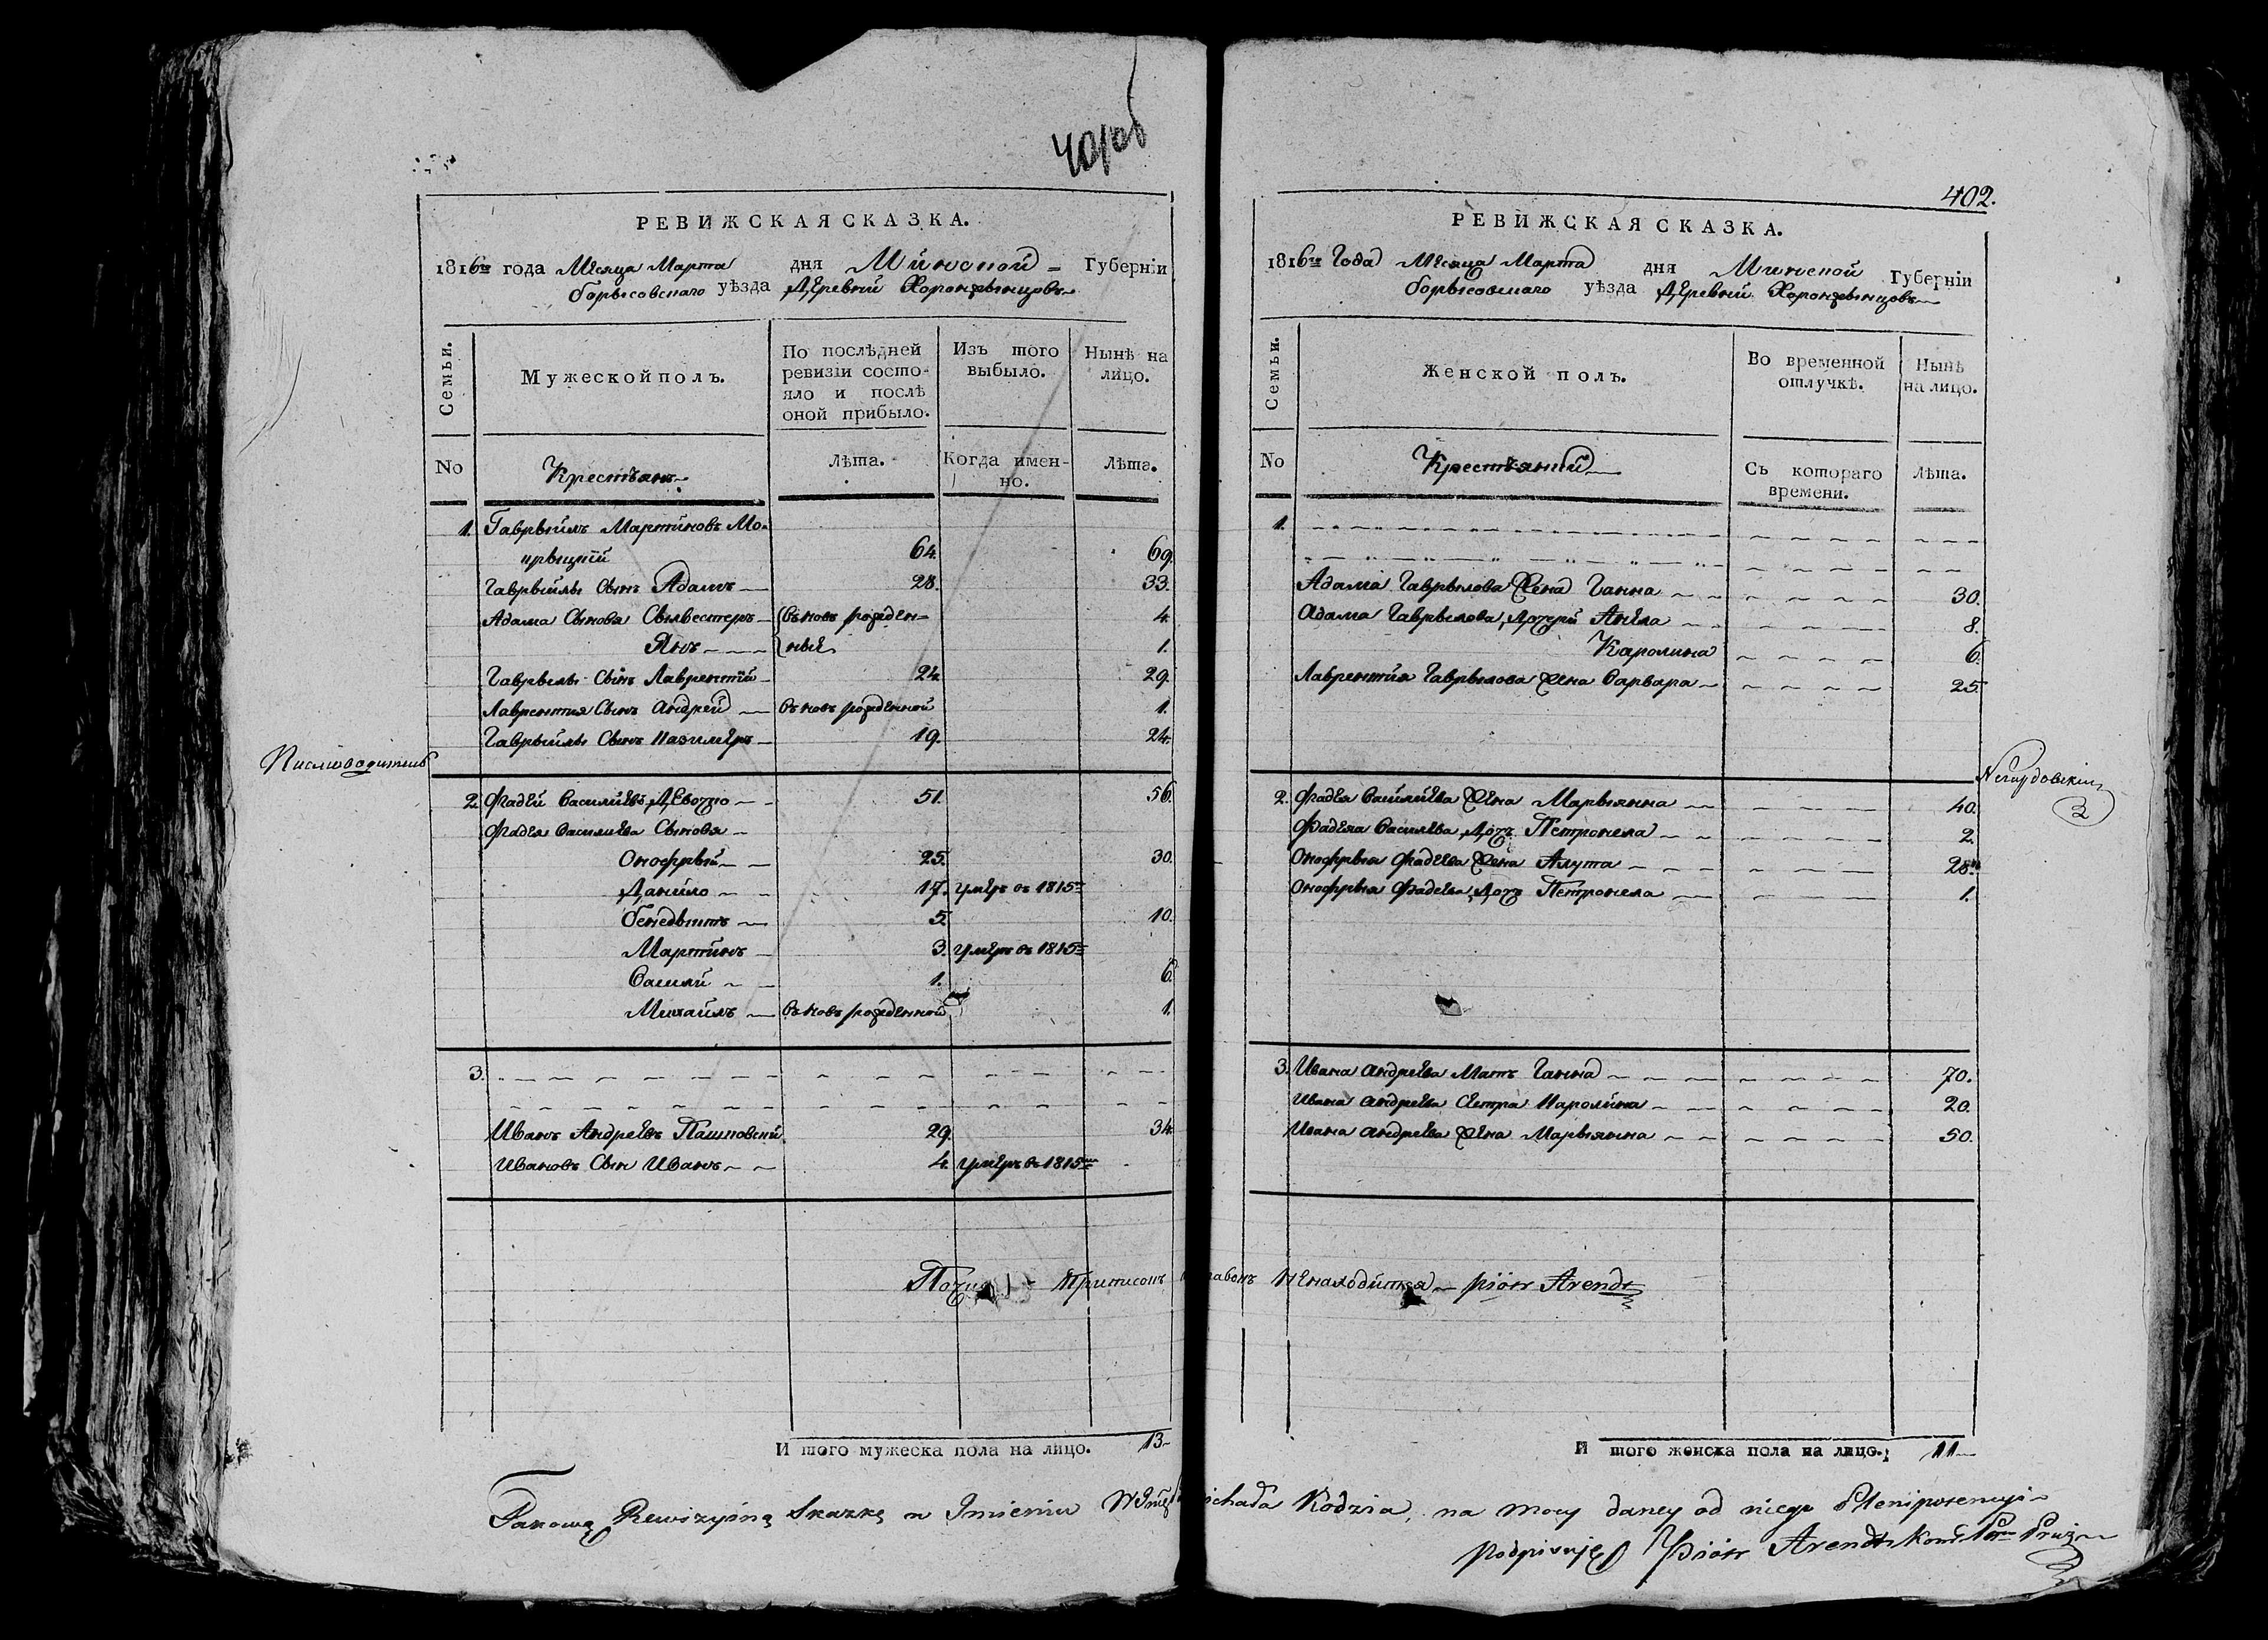 402.
РЕВИЖСКАЯ СКАЗКА.
1816го года Месяца Марта дня Минской Губерніи
борысовскаго уѣзда Деревни Хоронжынцовъ
Семьи.
Мужеской полъ.
По послѣдней ревизіи состояло и послѣ оной прибыло.
Изъ того выбыло.
Нынѣ на лицо.
No
Крестьянъ
Лѣта.
Когда именно.
Лѣта.
1. Гаврыилъ Мартиновъ Мо-
крыцкій 64. 69.
Гаврыилы Сынъ Адамъ 28. 33.
Адама Сыновя Сылвестеръ вновь рожден- 4.
Янъ ные 1.
Гаврылы Сынъ Лаврентій 24. 29.
Лаврентия Сынъ Андрей вновь рожденной 1.
Гаврыилы Сынъ Казимеръ 19. 24.
Писмоводитель
2. Фадей Василиевъ Девочко 51. 56.
Фадея Василиева Сыновя
Онофрый 25. 30.
Данило 17. умеръ въ 1815
бенедыктъ 5. 10.
Мартинъ 3. умеръ въ 1815
Василй 1. 6.
Михаилъ вновь рожденной 1.
3.
Иванъ Андреевъ Пашковскй 29. 34.
Ивановъ Сын Иванъ 4. умеръ въ 1815
И того мужеска пола на лицо. 13
РЕВИЖСКАЯ СКАЗКА.
1816го Года Месяца Марта дня Минской Губерніи
борысовскаго уѣзда Деревни Хоронжынцовъ
Семьи.
Женской полъ.
Во временной отлучкѣ.
Нынѣ на лицо.
No
Крестьянки
Съ котораго времени.
Лѣта.
1.
Адама Гаврылова Жена Ганна 30.
Адама Гаврылова Дочери Анела 8.
Каролина 6.
Лаврентия Гаврылова Жена Варвара 25.
2. Фадея Василиева Жена Марыянна 40.
Фадея Василева Дочь Петронела 2.
Онофрыя Фадеева Жена Алута 28.
Онофрыя Фадеева Дочь Петронела 1.
3. Ивана Андреева Мать Ганна 70.
Ивана Андреева Сестра Каролина 20.
Ивана Андреева Жена Марыянна 50.
Приписокъ Ненаходится piotr Arendt
И того женска пола на лицо. 11
Takową Rewizyiną Skazkę w Imieniu Rodzia, na mocy daney od niego Plenipotencyi
podpisuję Piotr Arendt